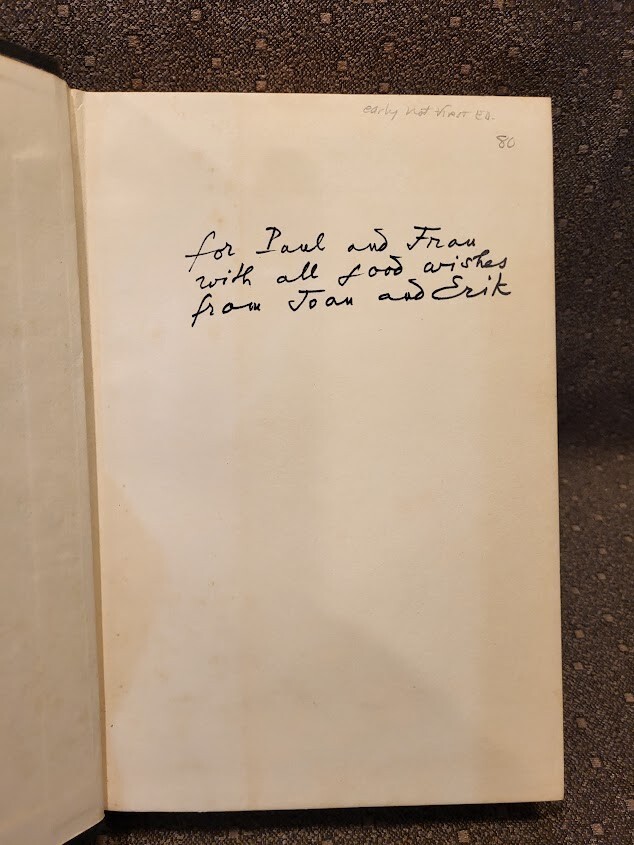 early not First ED.
80
for Paul and Fran
with all good wishes
from Joan and Erik